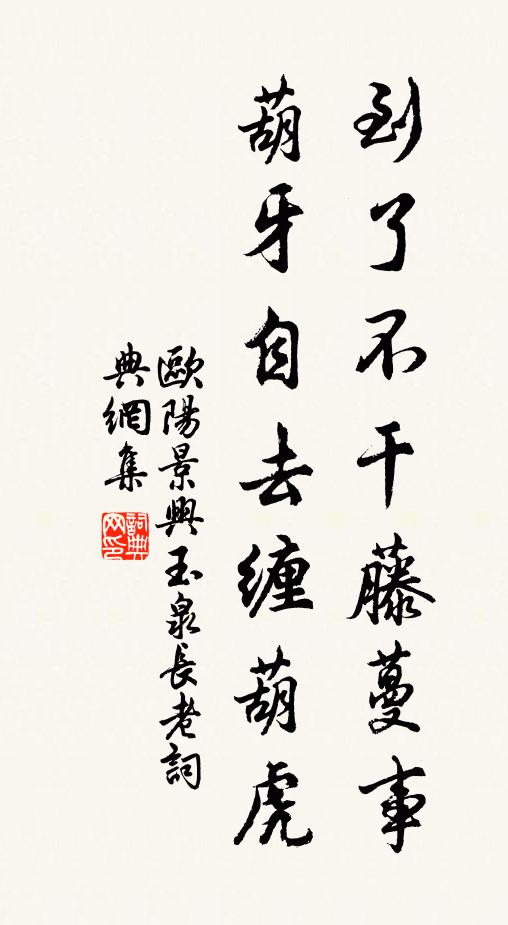 到了不干藤蔓事
葫牙自去缠葫虎
歐陽景興玉泉長老詞
典網集
詞典网印